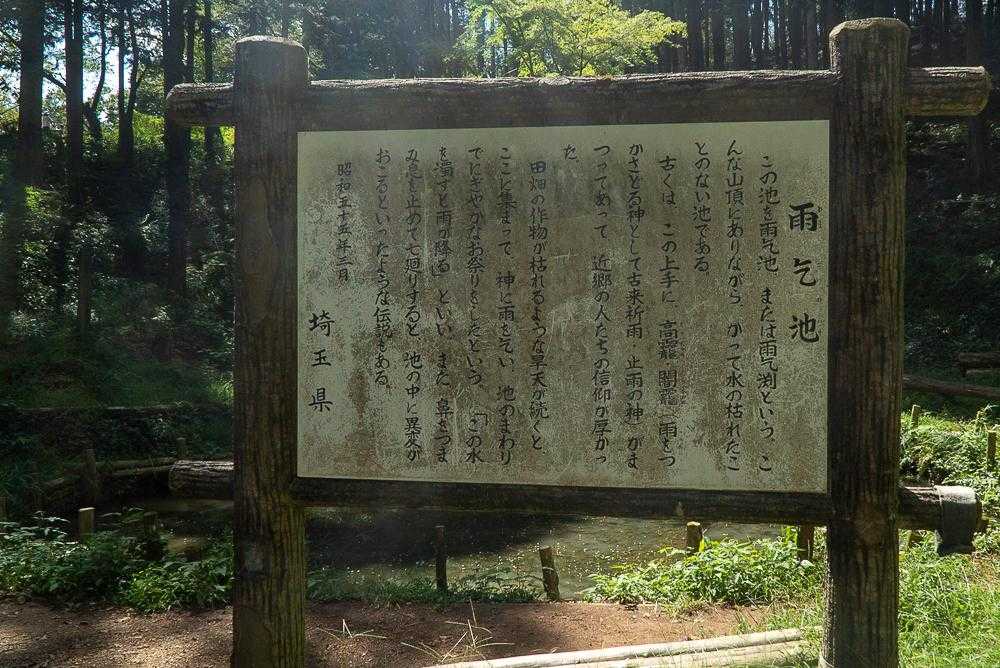 雨乞池
この池を雨乞池 または雨乞渕という。こ
んな山頂にありながら、かつて水の枯れたこ
とのない池である。
古くは この上手に 高龗 闇龗(雨をつ
かさどる神として古来祈雨 止雨の神)がま
つってあって 近郷の人たちの信仰が厚かっ
た。
田畑の作物が枯れるような旱天が続くと
ここに集まって 神に雨を乞い 池のまわり
でにぎやかなお祭りをしたという。「この水
を濁すと雨が降る」といい、また、鼻をつま
み息を止めて七廻りすると、池の中に異変が
おこるといったような伝説もある。
昭和五十五年三月
埼玉県